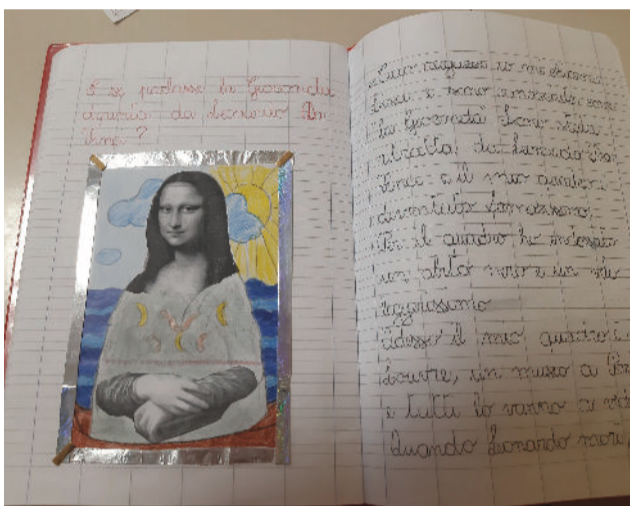 E se parlasse la Gioconda
dipinta da Leonardo Da
Vinci?
Ciao ragazzi io mi chiamo
Lisa e sono conosciuta come
la Gioconda. Sono stata
ritratta da Leonardo Da
Vinci e il mio quadro è
diventato famosissimo.
Per il quadro ho indossato
un abito nero e un velo
leggerissimo
Adesso il mio quadro è
Louvre, un museo a
e tutti lo vanno a
Quando Leonardo morì,